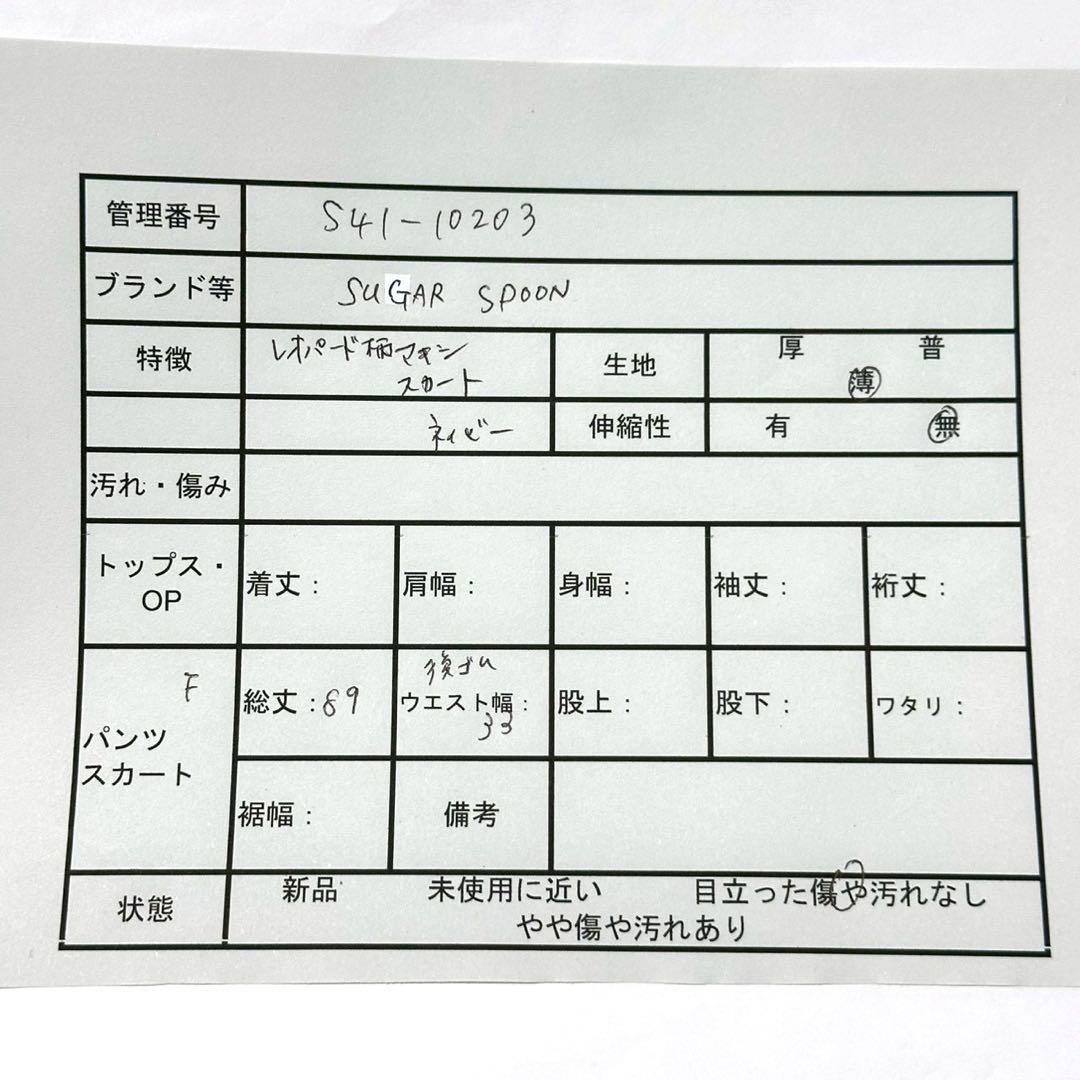 管理番号 S41-10203
ブランド等 SUGAR SPOON
特徴 レオパード柄マキシ 生地 厚 普
スカート 薄
ネイビー 伸縮性 有 無
汚れ・傷み
トップス・ 着丈： 肩幅： 身幅： 袖丈： 裄丈：
OP
後ゴム
F 総丈：89 ウエスト幅： 股上： 股下： ワタリ：
33
パンツ
スカート
裾幅： 備考
状態 新品 未使用に近い 目立った傷や汚れなし
やや傷や汚れあり